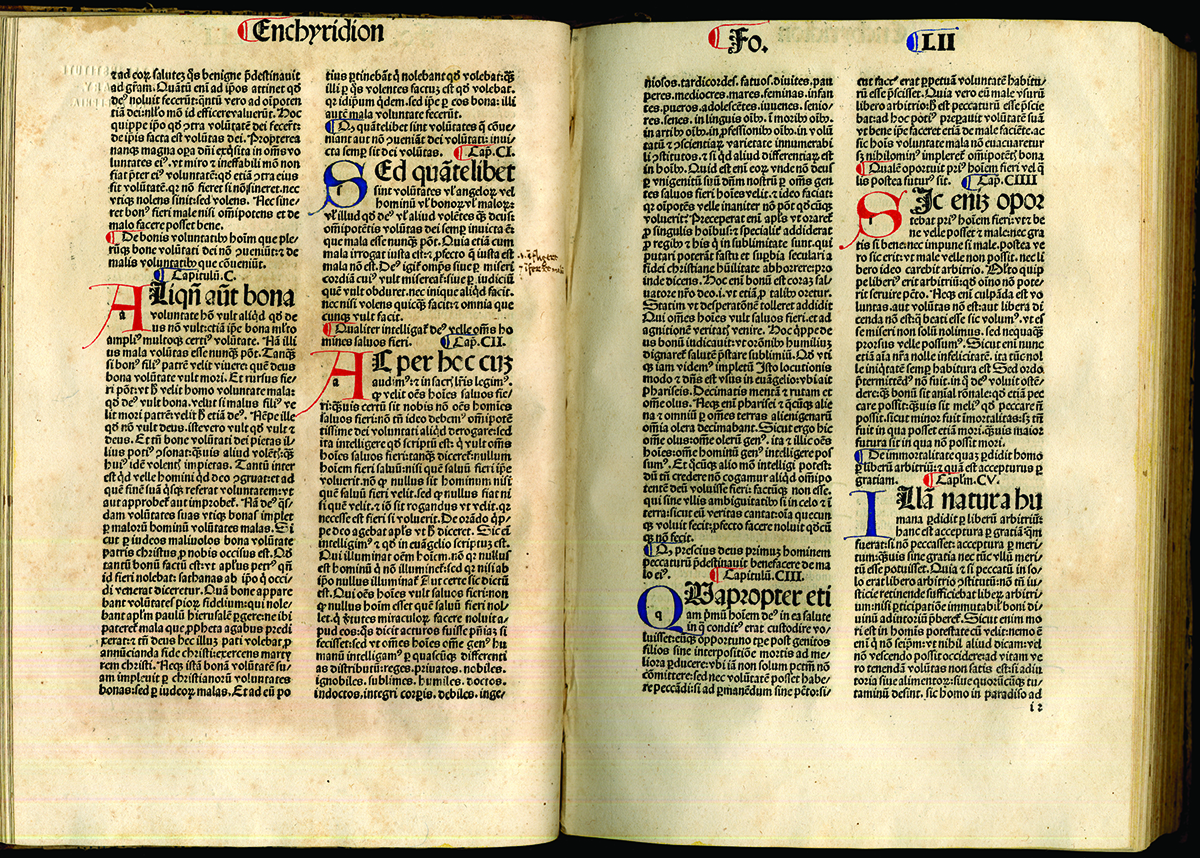 Enchyridion
⁊ad eoꝝ salutez q̃s benigne p̃destinauit
ad gr̃am. Quãtũ em̃ ad ip̃os attinet qđ
de᷒ noluit fecerũt: q̃ntũ vero ad oĩpoten
tiã dei: nĺlo mõ id efficere valuerũt. Hoc
quippe ip̃o qđ ꝯtra volũtatẽ dei fecer̃t:
de ip̃is facta est volũtas dei. Propterea
nanqꝫ magna oꝑa dñi exq̃sita in om̃s vo
luntates ei᷒. vt miro ⁊ ineffabili mõ non
fiat p̃ter ei᷒ voluntatẽ: qđ etiã ꝯtra eius
fit volũtatẽ. qꝛ nõ fieret si nõ sineret. nec
vtiqꝫ nolens sinit: sed volens. Nec sine-
ret bon᷒ fieri male nisi om̃ipotens et de
malo facere posset bene.
De bonis voluntatib᷒ hoĩm que ple-
rũqꝫ bone volũtati dei nõ ꝯueniũt: ⁊ de
malis volũtatib᷒ que cõueniũt.
Capitulũ. C.
ALiqñ aũt bona
a
voluntate hõ vult aliqđ qđ de
us nõ vult: etiã ip̃e bona mĺto
ampli᷒ multoqꝫ certi᷒ volũtate. Nã illi
us mala volũtas esse nunqꝫ põt. Tanqꝫ
si bon᷒ fili᷒ patrẽ velit viuere: quẽ deus
bona volũtate vult mori. Et rursus fie-
ri põt: vt ħ velit homo voluntate mala:
qđ de᷒ vult bona. velut si malus fili᷒ ve
lit mori patrẽ: velit ħ etiã de᷒. Nẽpe ille
qđ nõ vult deus: iste vero vult qđ vult ⁊
deus. Et tñ bone volũtati dei pietas il-
lius poti᷒ ꝯsonat: quis aliud volẽt᷒: qꝫ
hui᷒ idẽ volent᷒ impietas. Tantũ inter
est qđ velle homini qđ deo ꝯgruat: et ad
quẽ finẽ suã q̃sqꝫ referat voluntatem: vt
aut approbet᷒ aut improbet᷒. Nã de᷒ q̃s-
dam volũtates suas vtiqꝫ bonas implet
ꝑ malorũ hominũ volũtates malas. Si
cut ꝑ iudeos maliuolos bona volũtate
patris christus ꝓ nobis occisus est. Qđ
tantũ bonũ factũ est: vt apl̃us petr᷒ qñ
id fieri nolebat: sathanas ab ip̃o q̃ occi-
di venerat diceretur. Quã bone appare
bant volũtates pioꝝ fidelium: qui nole-
bant apl̃m paulũ hierusalẽ ꝑgere: ne ibi
pateret᷒ mala que ꝓpheta agabus predi
xerat: ⁊ tñ deus hec illuꝫ pati volebat ꝓ
annũcianda fide christi: exercens marty
rem christi. Neqꝫ istã bonã volũtatẽ su-
am impleuit ꝑ christianorũ voluntates
bonas: sed ꝑ iudeoꝝ malas. Et ad eũ po
tius ꝑtinebãt q̃ nolebant qđ volebat: qꝫ
illi ꝑ q̃s volentes factuꝫ est qđ volebat.
qꝛ idip̃um q̃dem. sed ip̃e ꝑ eos bona: illi
autẽ mala voluntate fecerunt.
Qꝫ quãtelibet sint volũtates q̃ cõue-
niant aut nõ ꝯueniãt dei volũtati: inui-
cta semꝑ sit dei volũtas. Cap̃. CI.
SEd quãtelibet
s
sint volũtates vĺ angeloꝝ vel
hominũ vĺ bonoꝝ vĺ maloꝝ:
vĺ illud qđ de᷒ vĺ aliud volẽtes qꝫ deus:
om̃ipotẽtis volũtas dei semꝑ inuicta ẽ:
que mala esse nunqꝫ põt. Quia etiã cum
mala irrogat iusta est: ⁊ ꝓfecto q̃ iusta est
mala nõ est. De᷒ igit᷒ om̃ps siue ꝑ miseri
cordiã cui᷒ vult misereat᷒: siue ꝑ iudiciũ
quẽ vult obduret. nec inique aliqđ facit.
nec nisi volens quicqꝫ facit: ⁊ omnia que
cunqꝫ vult facit.
Qualiter intelligat᷒ de᷒ velle om̃s ho
mines saluos fieri. Cap̃. CII.
AC per hoc cuꝫ
a
audim᷒: ⁊ in sacris lr̃is legim᷒.
ꝙ velit oẽs hoĩes saluos fie-
ri: quis certũ sit nobis nõ oẽs homĩes
saluos fieri: nõ tñ ideo debem᷒ om̃ipotẽ
tissime dei voluntati aliqđ derogare: sed
ita intelligere qđ scriptũ est: q̃ vult om̃s
hoĩes saluos fieri: tanqꝫ diceret᷒: nullum
hoĩem fieri saluũ: nisi quẽ saluũ fieri ip̃e
voluerit. nõ ꝙ nullus sit hominum: nisi
quẽ saluũ fieri velit. sed ꝙ nullus fiat ni
si quẽ velit. ⁊ iõ sit rogandus vt velit. qꝛ
necesse est fieri si voluerit. De orãdo q̃p-
pe deo agebat apl̃s vt ħ diceret. Sic em̃
intelligim᷒ ⁊ qđ in euãgelio scriptuꝫ est.
Qui illuminat oẽm hoĩem. nõ qꝛ nullus
est hominũ q̃ nõ illuminet᷒: sed qꝛ nisi ab
ip̃o nullus illuminat᷒. Aut certe sic dictũ
est. Qui oẽs hoĩes vult saluos fieri: non
ꝙ nullus hoĩm esset quẽ saluũ fieri nol-
let. q̃ ṽtutes miraculoꝝ facere noluit a-
pud eos: q̃s dicit acturos fuisse pñiaꝫ si
fecisset: sed vt om̃es hoĩes om̃e gen᷒ hu
manũ intelligam᷒ ꝑ quascũqꝫ differenti
as distributũ: reges. priuatos. nobiles.
ignobiles. sublimes. humiles. doctos.
indoctos. integri corꝑis. debiles. inge-
Fo. LII
niosos. tardicordes. fatuos. diuites. pau
peres. mediocres. mares. feminas. infan
tes. pueros. adolescẽtes. iuuenes. senio-
res. senes. in linguis oĩbꝫ. ĩ moribꝫ oĩbꝫ.
in artibꝫ oĩbꝫ. in ꝓfessionibꝫ oĩbꝫ. in volũ
tatũ ⁊ ꝯscientiaꝝ varietate innumerabi
li ꝯstitutos. ⁊ si qđ aliud differentiaꝝ est
in hoĩbꝫ. Quid est em̃ eoꝝ vnde nõ deus
ꝑ vnigenitũ suũ dñm nostrũ ꝑ om̃s gen
tes saluos fieri hoĩes velit. ⁊ ideo faciat:
qꝛ oĩpotẽs velle inaniter nõ põt qđcũqꝫ
voluerit? Preceperat em̃ apl̃s vt oraret᷒
ꝓ singulis hoĩbꝫ: ⁊ specialit᷒ addiderat
ꝓ regibꝫ ⁊ hiis q̃ in sublimitate sunt. qui
putari poterãt fastu et suꝑbia seculari a
fidei christiane hũilitate abhorrere: pro
inde dicens. Hoc em̃ bonũ est coraꝫ sal-
uatore nr̃o deo. i. vt etiã ꝓ talibꝫ oretur.
Statim vt desperatõnẽ tolleret addidit
Qui om̃es hoĩes vult saluos fieri: et ad
agnitionẽ veritat᷒ venire. Hoc q̃ppe de
us bonũ iudicauit: vt orõnibꝫ humiliuꝫ
dignaret᷒ salutẽ p̃stare sublimiũ. Qđ vti
qꝫ iam videm᷒ impletũ Isto locutionis
modo ⁊ dñs est vsus in euãgelio: vbi ait
phariseis. Decimatis mentã ⁊ rutam et
om̃e olus. Neqꝫ em̃ pharisei ⁊ q̃cũqꝫ alie
na ⁊ omniũ ꝑ om̃es terras alienigenarũ
om̃ia olera decimabant. Sicut ergo hic
om̃e olus: om̃e olerũ gen᷒. ita ⁊ illic oẽs
hoĩes: om̃e hominũ gen᷒ intelligere pos
sum᷒. Et q̃cũqꝫ alio mõ intelligi potest:
dũ tñ credere nõ cogamur aliqđ om̃ipo
tentẽ deũ voluisse fieri: factũqꝫ non esse.
qui sine vllis ambiguitatibꝫ si in celo ⁊ ĩ
terra: sicut eũ veritas cantat: oĩa quecun
qꝫ voluit fecit: ꝓfecto facere noluit qđcũ
qꝫ nõ fecit.
Qꝫ prescius deus primuꝫ hominem
peccaturũ p̃destinauit benefacere de ma
lo ei᷒. Capitulũ. CIII.
QVapropter eti
q
am p̃mũ hoĩem de᷒ in ea salute
in q̃ condit᷒ erat custodire vo-
luisset: eũqꝫ opportuno tꝑe post genitos
filios sine interpositiõne mortis ad me-
liora ꝑducere: vbi iã non solum pctm̃ nõ
cõmittere: sed nec volũtatẽ posset habe-
re peccãdi: si ad ꝑmanẽdum sine pctõ: si-
cut fact᷒ erat ꝑpetuã voluntatẽ habitu-
rũ esse p̃scisset. Quia vero eũ male vsurũ
libero arbitrio: ħ est peccaturũ esse p̃scie
bat: ad hoc poti᷒ p̃parauit volũtatẽ suã
vt bene ip̃e faceret etiã de male faciẽte. ac
sic hoĩs voluntate mala nõ euacuaretur
sꝫ nihilomin᷒ impleret᷒ om̃ipotẽt᷒ bona
Qualẽ oportuit pri᷒ hoĩem fieri vel q̃
lis postea futur᷒ sit. Cap̃. CIIII
SIc eniꝫ opor
s
tebat pri᷒ hoĩem fieri: vt ⁊ be
ne velle posset ⁊ male: nec gra
tis si bene: nec impune si male. postea ve
ro sic erit: vt male velle non possit. nec li-
bero ideo carebit arbitrio. Mĺto quip
pe liberi᷒ erit arbitriũ: qđ oĩno nõ pote-
rit seruire pctõ. Neqꝫ em̃ culpãda est vo
luntas. aut volũtas nõ est: aut libera di
cenda nõ est: q̃ beati esse sic volum᷒. vt es
se miseri non solũ nolimus. sed nequaqꝫ
prorsus velle possum᷒. Sicut em̃ nunc
etiã aĩa nr̃a nolle infelicitatẽ. ita tũc nol
le iniq̃tatẽ semꝑ habitura est Sed ordo
p̃termittẽd᷒ nõ fuit. in q̃ de᷒ voluit ostẽ-
dere: qꝫ bonũ sit aĩal rõnale: qđ etiã pec
care possit: quis sit meli᷒ qđ peccare nõ
possit. sicut minor fuit imortalitas: sꝫ tñ
fuit in qua posset etiã mori. quis maior
futura sit in qua nõ possit mori.
De immortalitate quaꝫ ꝑdidit homo
ꝑ liberũ arbitriũ: ⁊ qua est accepturus ꝑ
gratiam. Capl̃m. CV.
ILlã natura hu
i
mana ꝑdidit ꝑ liberũ arbitriũ:
hanc est acceptura ꝑ gratiã: q̃ni
fuerat: si nõ peccasset: acceptura ꝑ meri-
tum: quis sine gratia nec tũc vllũ meri-
tũ esse potuisset. Quia ⁊ si peccatũ in so-
lo erat libero arbitrio ꝯstitutũ: nõ tñ iu-
sticie retinende sufficiebat liberꝫ arbitri-
um: nisi ꝑticipatiõe immutabil᷒ boni di-
uinũ adiutoriũ p̃beret᷒. Sicut enim mo
ri est in homĩs potestate cũ velit: nemo ẽ
em̃ q̃ nõ seip̃m: vt nihil aliud dicam: vel
nõ vescendo possit occidere: ad vitam ve
ro tenendã volũtas non satis est: si adiu
toria siue alimentoꝝ: siue quorũcũqꝫ tu-
taminũ desint. sic homo in paradiso ad
i 2